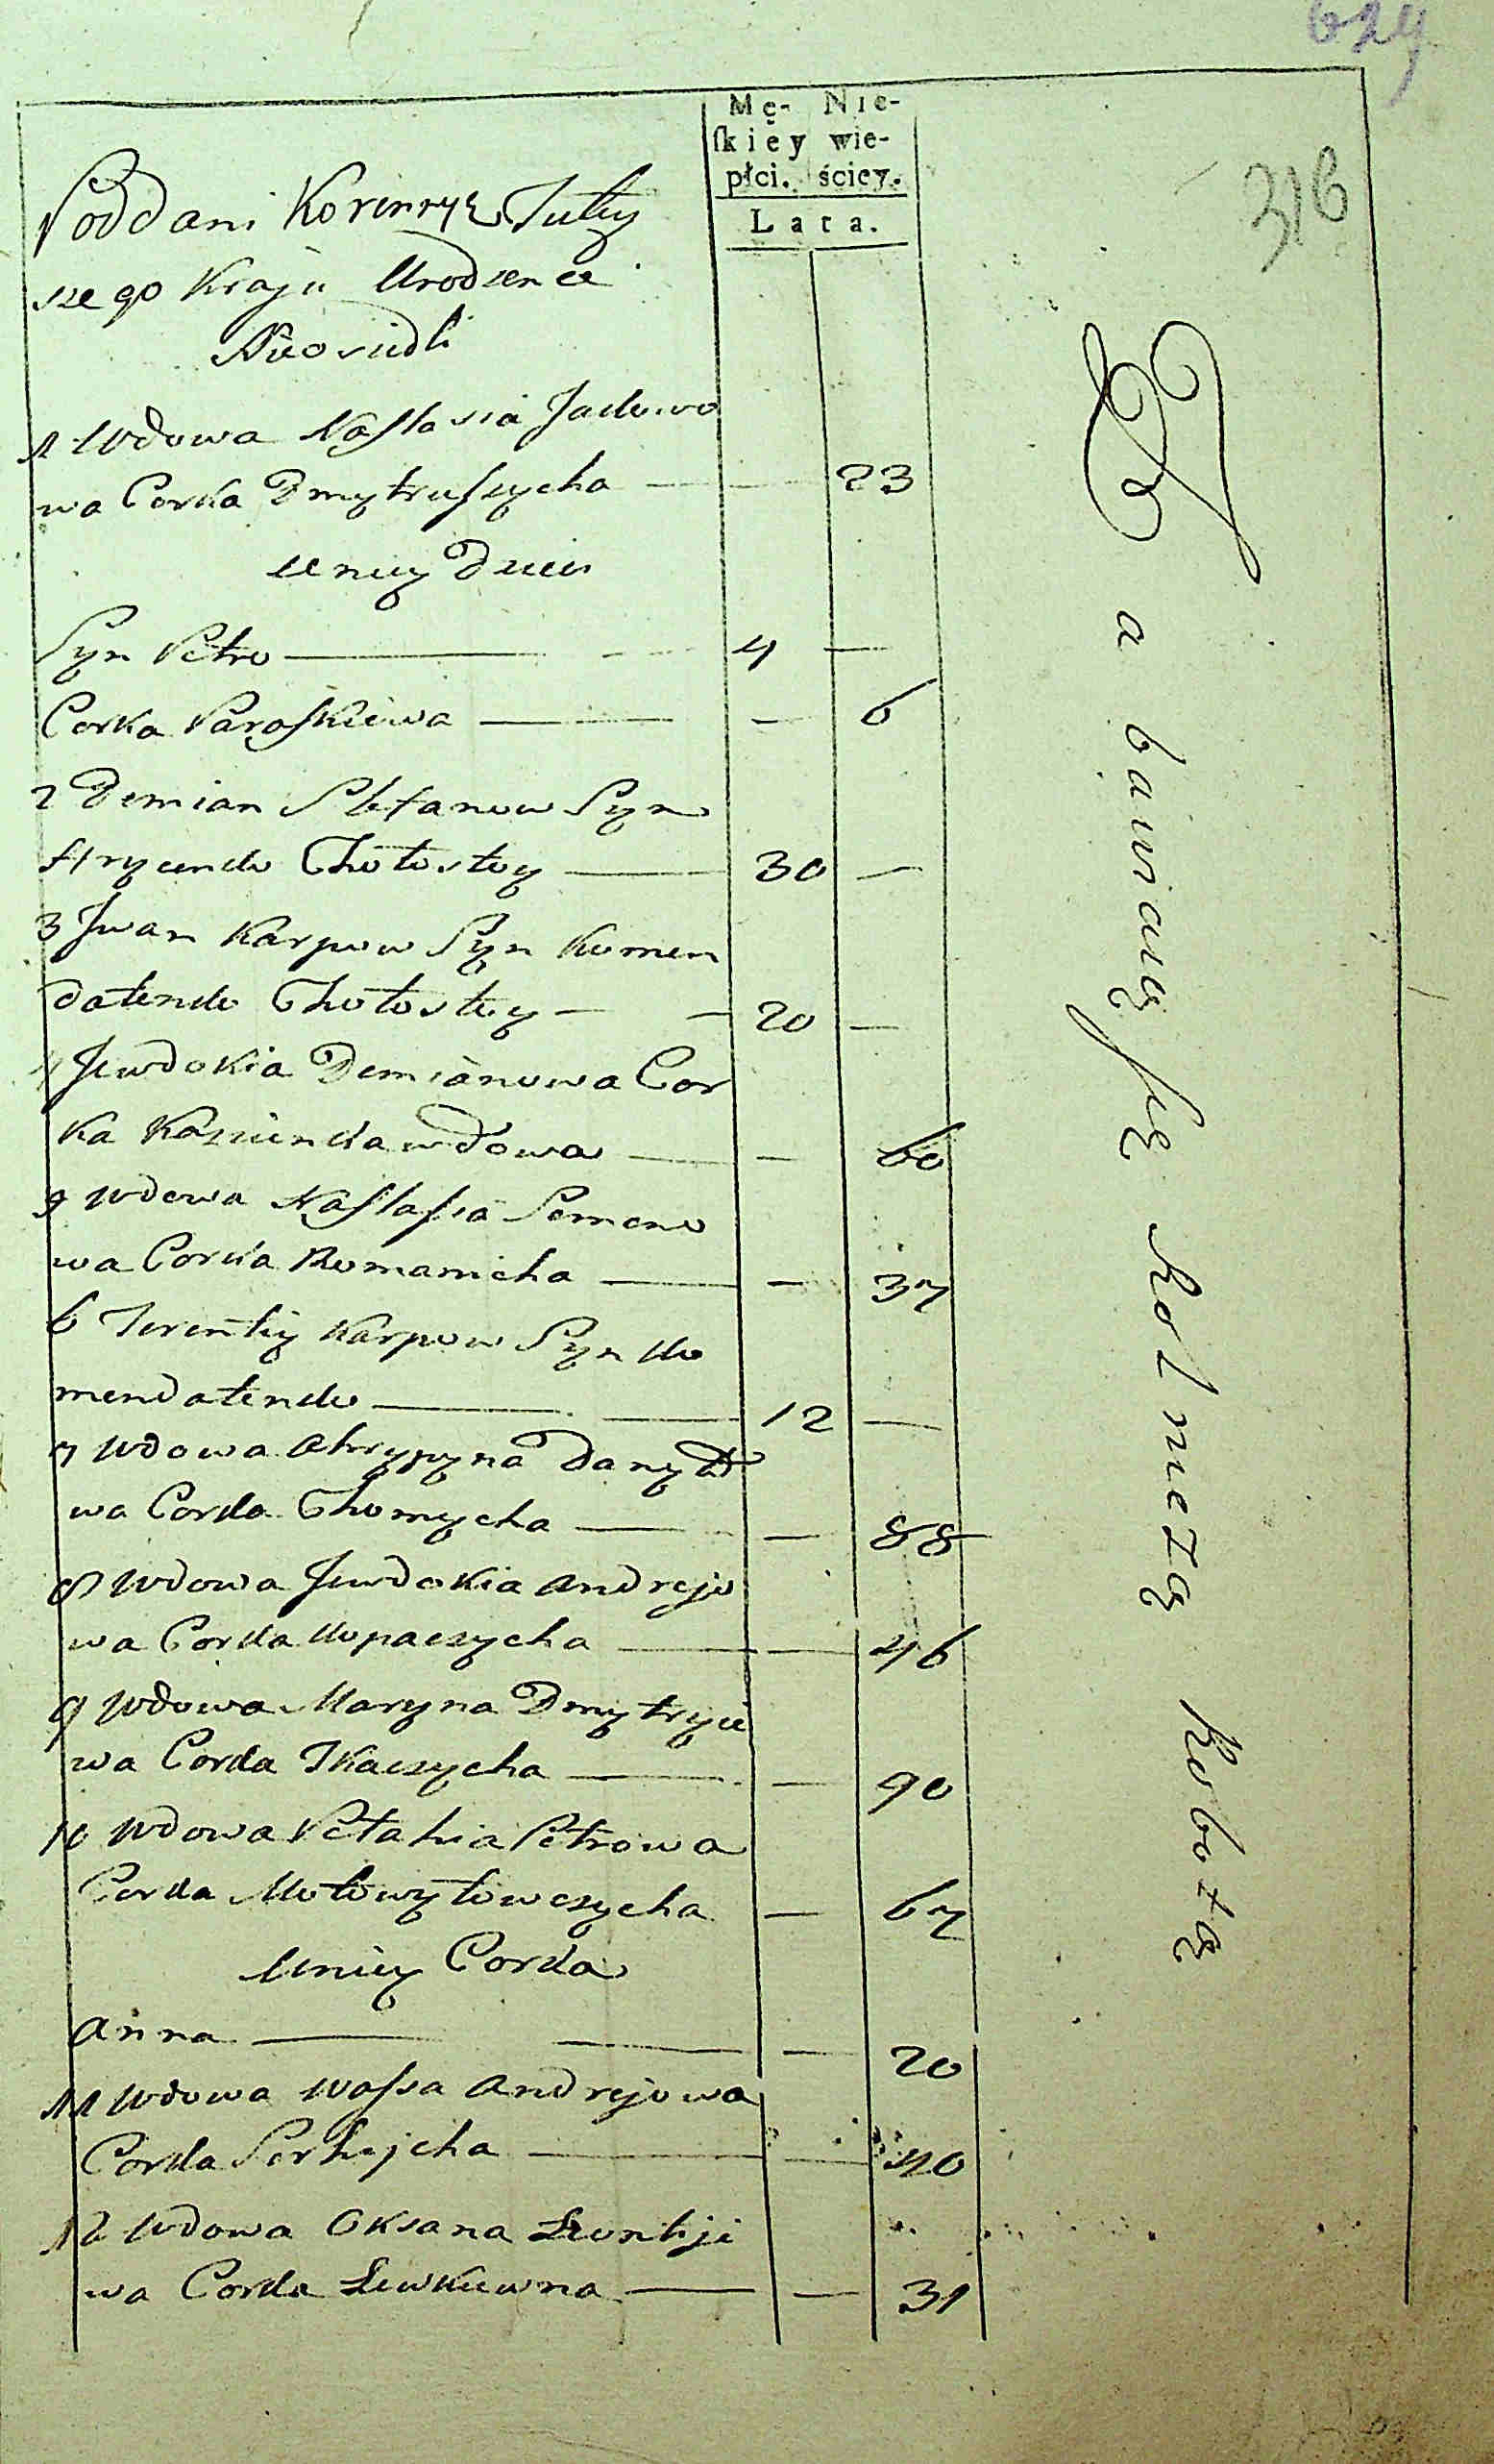 629
316
Mę- Nie-
ſkiey wie-
płci. ściey.
Lata.
Poddani Korinnye Tuty
szego Kraju Urodzence
Nieosiedli
1 Wdowa Nastasia Jackowo
wa Corka Dmytruszycha — — 23
u niey Dzieci
Syn Petro — 4 —
Corka Paraskiewa — — 6
2 Demian Stefanow Syn
Hrycenko Chołosty — 30 —
3 Jwan Karpow Syn Komen
datenko Chołosty — 20 —
4 Jewdokia Demianowa Cor
ka Kozienka wdowa — — 60
5 Wdowa Nastasia Semeno
wa Corka Romanicha — — 37
6 Terentiy Karpow Syn Ko
mendatenko — 12 —
7 Wdowa Ahrypyna Danyło
wa Corka Chomycha — — 88
8 Wdowa Jewdokia Andrejo
wa Corka Kopaczycha — — 46
9 Wdowa Maryna Dmytryie
wa Corka Tkaczycha — — 90
10 Wdowa Petahia Petrowa
Corka Mołowyłowczycha — 67
U niey Corka
Anna — — 20
11 Wdowa Wassa Andrejowa
Corka Serhejcha — — 40
12 Wdowa Oksana Leontije
wa Corka Lewkowna — — 31
Zabawiaią się Rolniczą Robotą